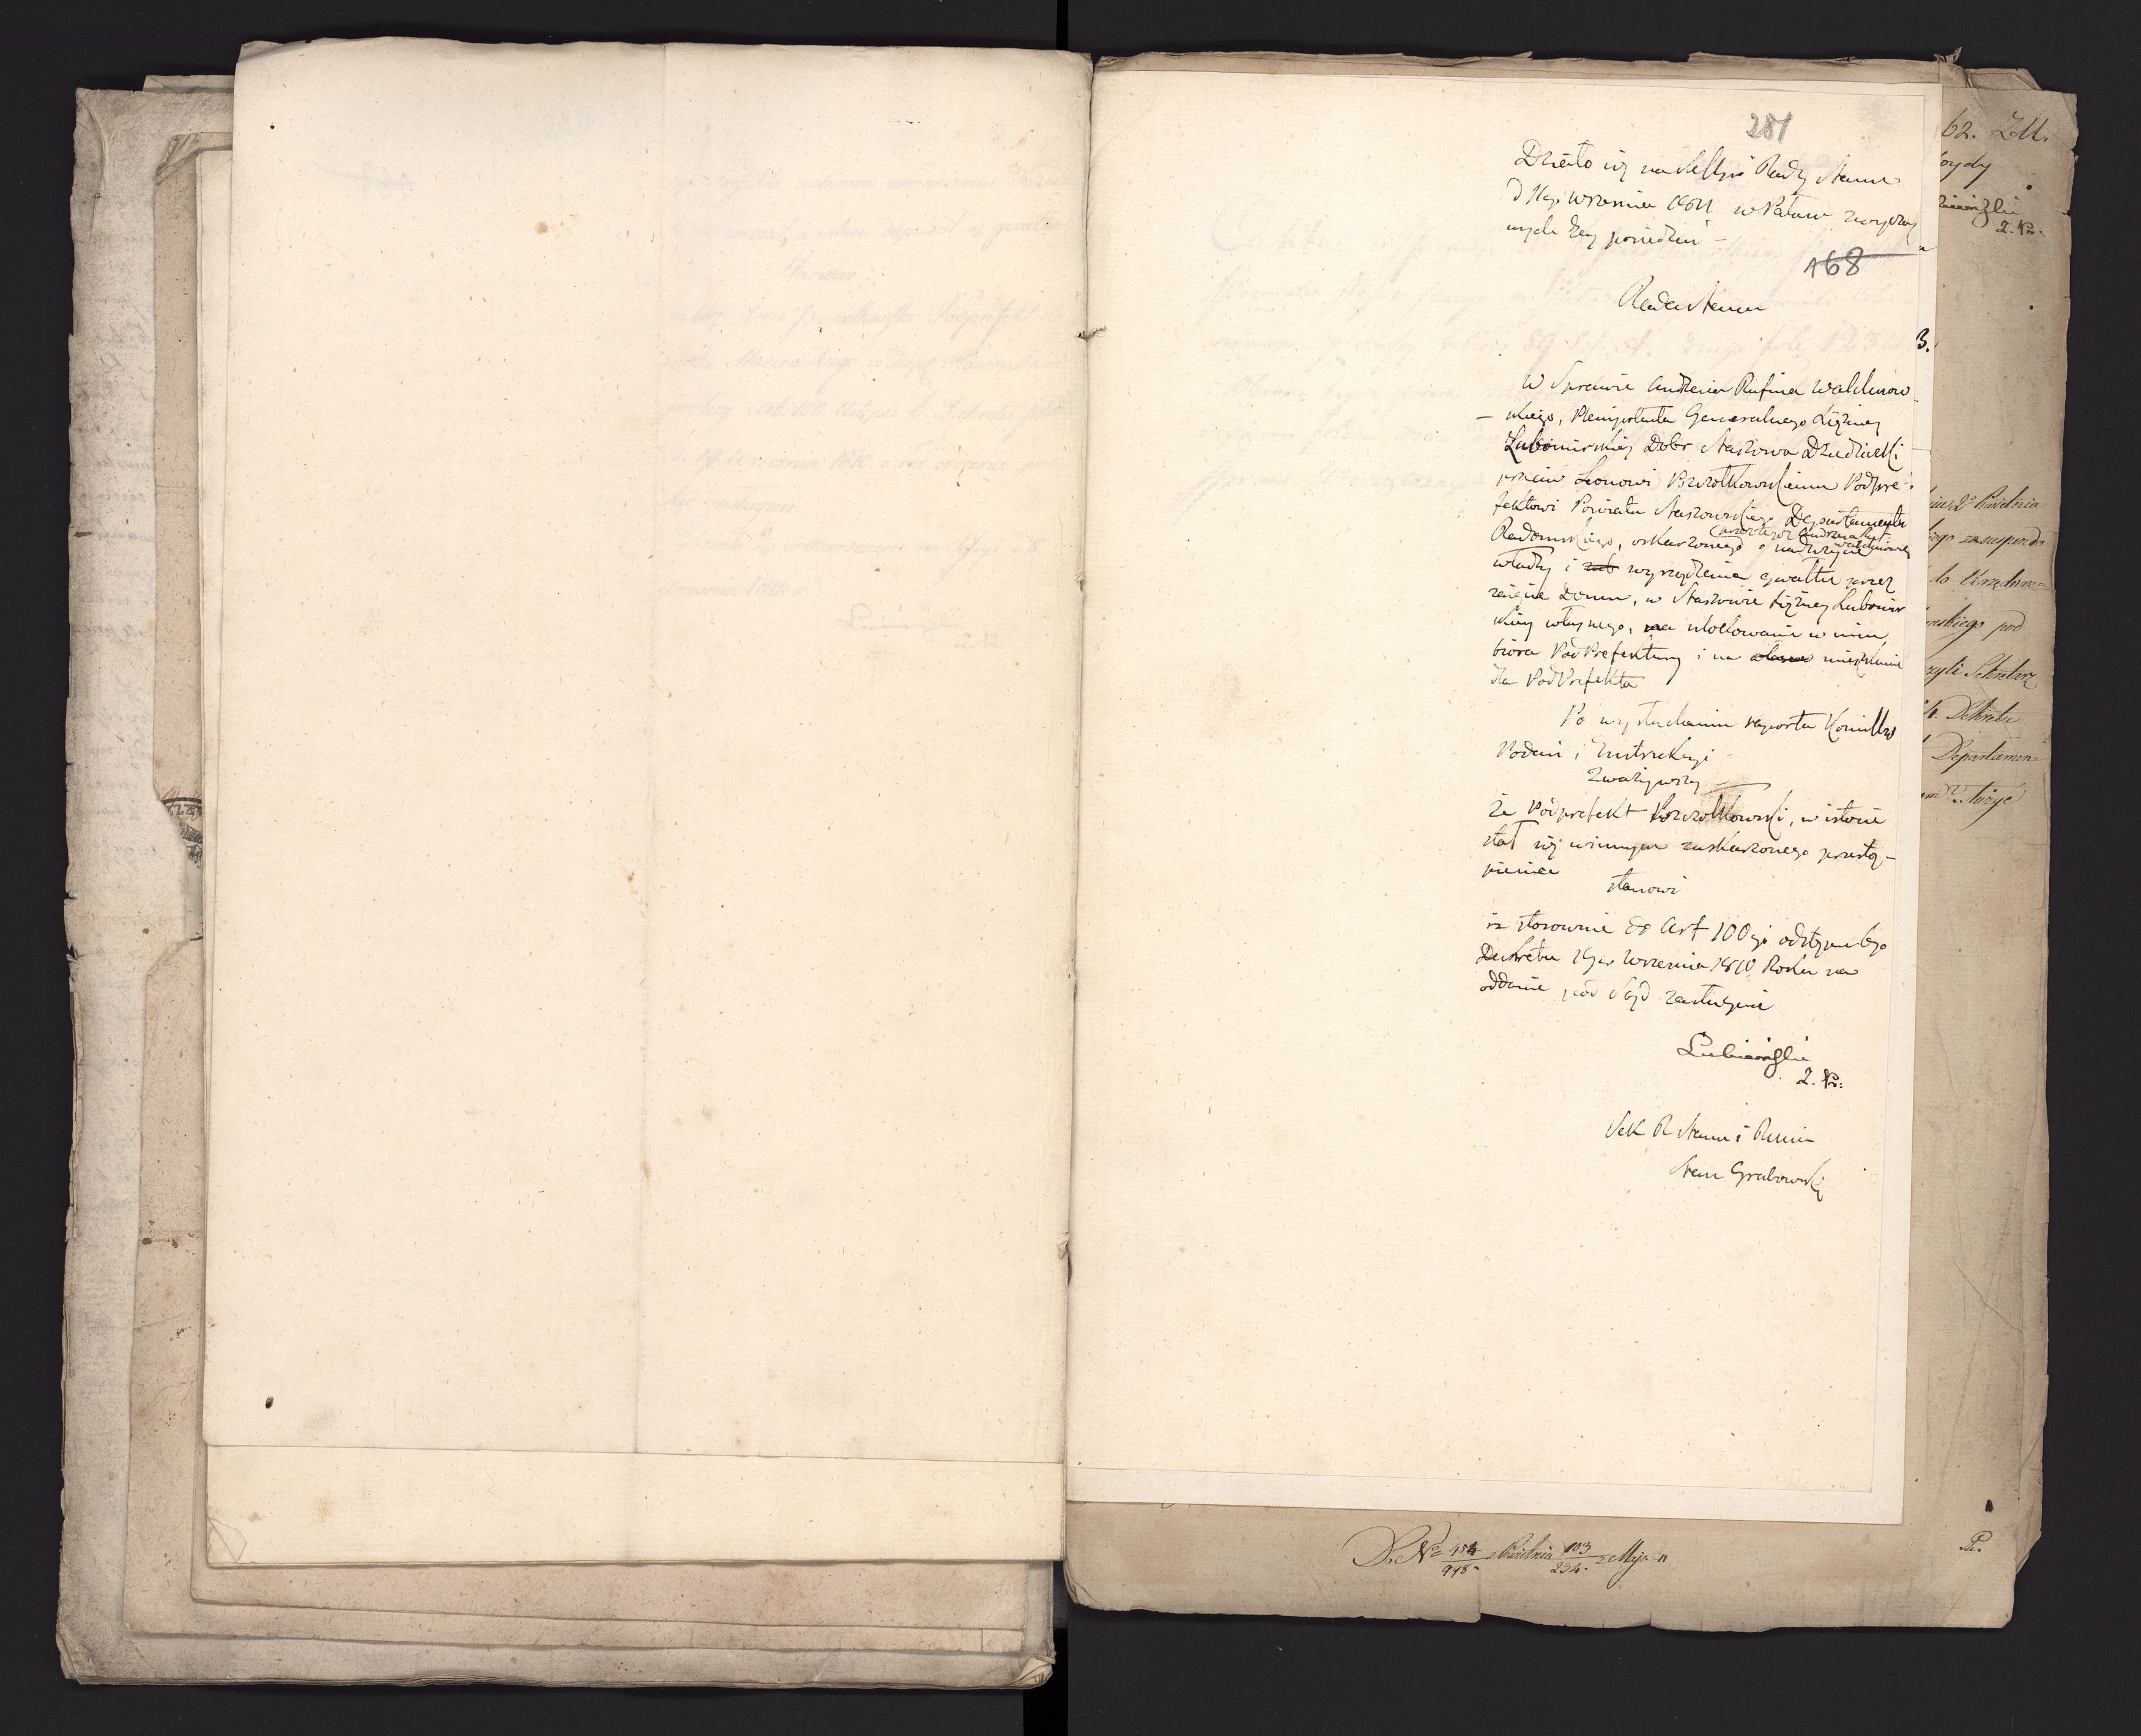 281
Działo się na Sessyi Rady Stanu
D 11go Września 1811 w Pałacu zwyczay
nych Jey posiedzeń –
168
Rada Stanu
3.
W Sprawie Andrzeia Rufina Walchnow
– skiego, Plenipotenta Generalnego Xiężney
Lubomirskiey Dobr Staszowa Dziedziczki
przeciw Leonowi Pszczołkowskiemu Podpre-
fektowi Powiatu Staszowskiego Departamentu
Radomskiego, oskarżonego przez tegoż Andrzeia
o nadużycie
władzy i wyrządzenia gwałtu przez
zaięcie Domu, w Staszowie Xiężney Lubomir
skiey własnego, na ulokowanie w nim
bióra PodPrefektury i na mieszkanie
dla PodPrefekta
Po wysłuchaniu raportu Kommissyi
Podań i Instrukcyi
Zważywszy
że Podprefekt Pszczołkowski, w istocie
stał się winnym zaskarżonego przestę-
pienia
stanowi
iż stosownie do Art 100go odstępu 6go
Dekretu 19go Września 1810 Roku na
oddanie pod Sąd zasługuie
Lubieński
Z. Pr:
Sek R Stanu i Minis
Stan Grabowski
62. ZM.
Z. Pr:
Kwietnia
do Urzędowa=
pod
Sekretarz
Dekretu
Departamen=
D. No 454/948 z Kwietnia 103/234 z Maja
Pr.